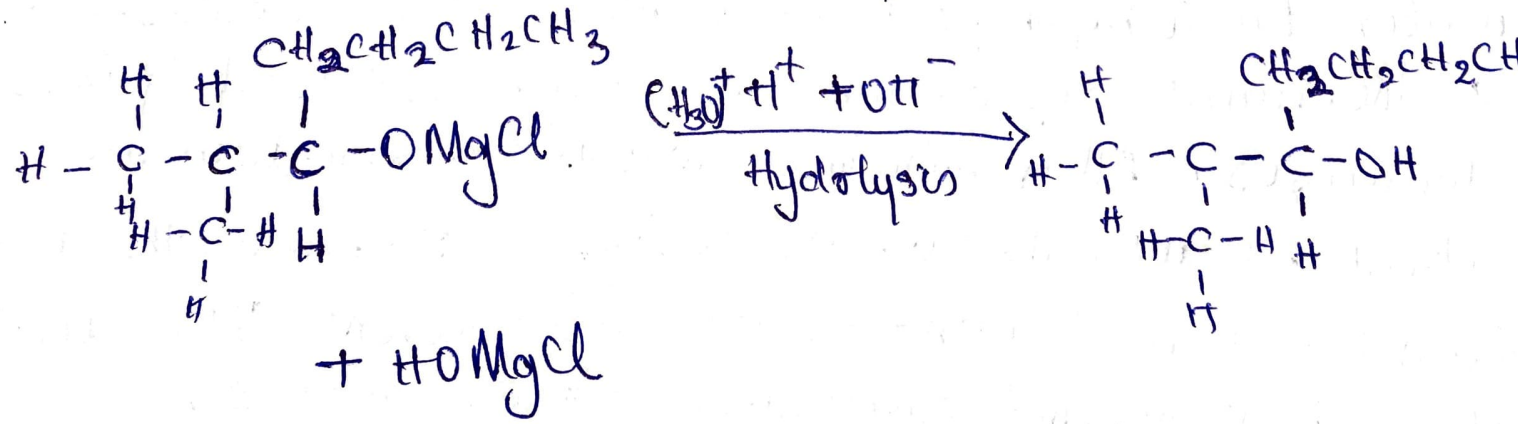 CH2CH2CH2CH3
H H
H - C - C - C - OMgCl. (H3O)+ H+ + OH-
Hydolysis
H
H - C - H H
H
CH2CH2CH2CH
H
H - C - C - C - OH
H
H - C - H H
H
+ HOMgCl